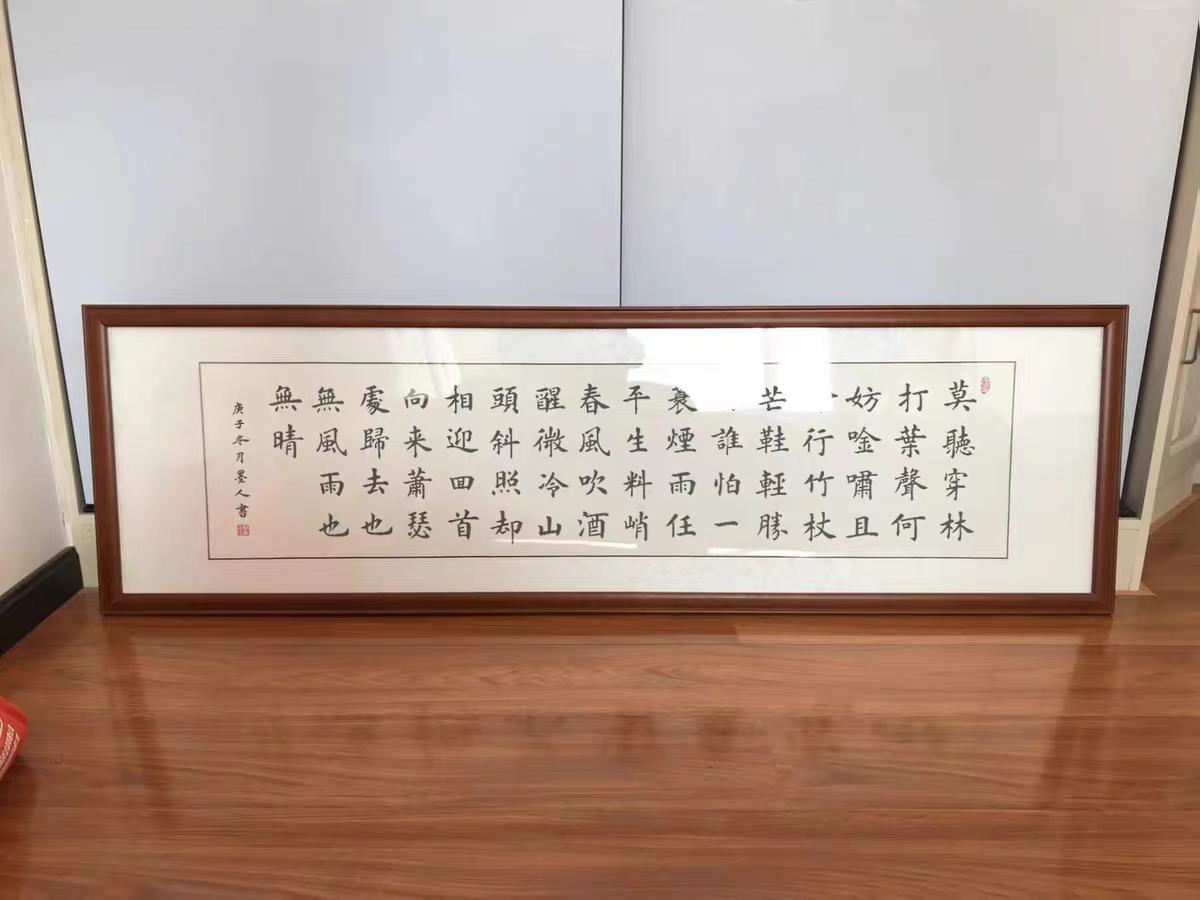 莫聽穿林
打葉聲何
妨唫嘯且
行竹杖
芒鞋輕勝
誰怕一
蓑煙雨任
平生料峭
春風吹酒
醒微冷山
頭斜照却
相迎回首
向来蕭瑟
處歸去也
無風雨也
無晴
庚子冬月墨人書